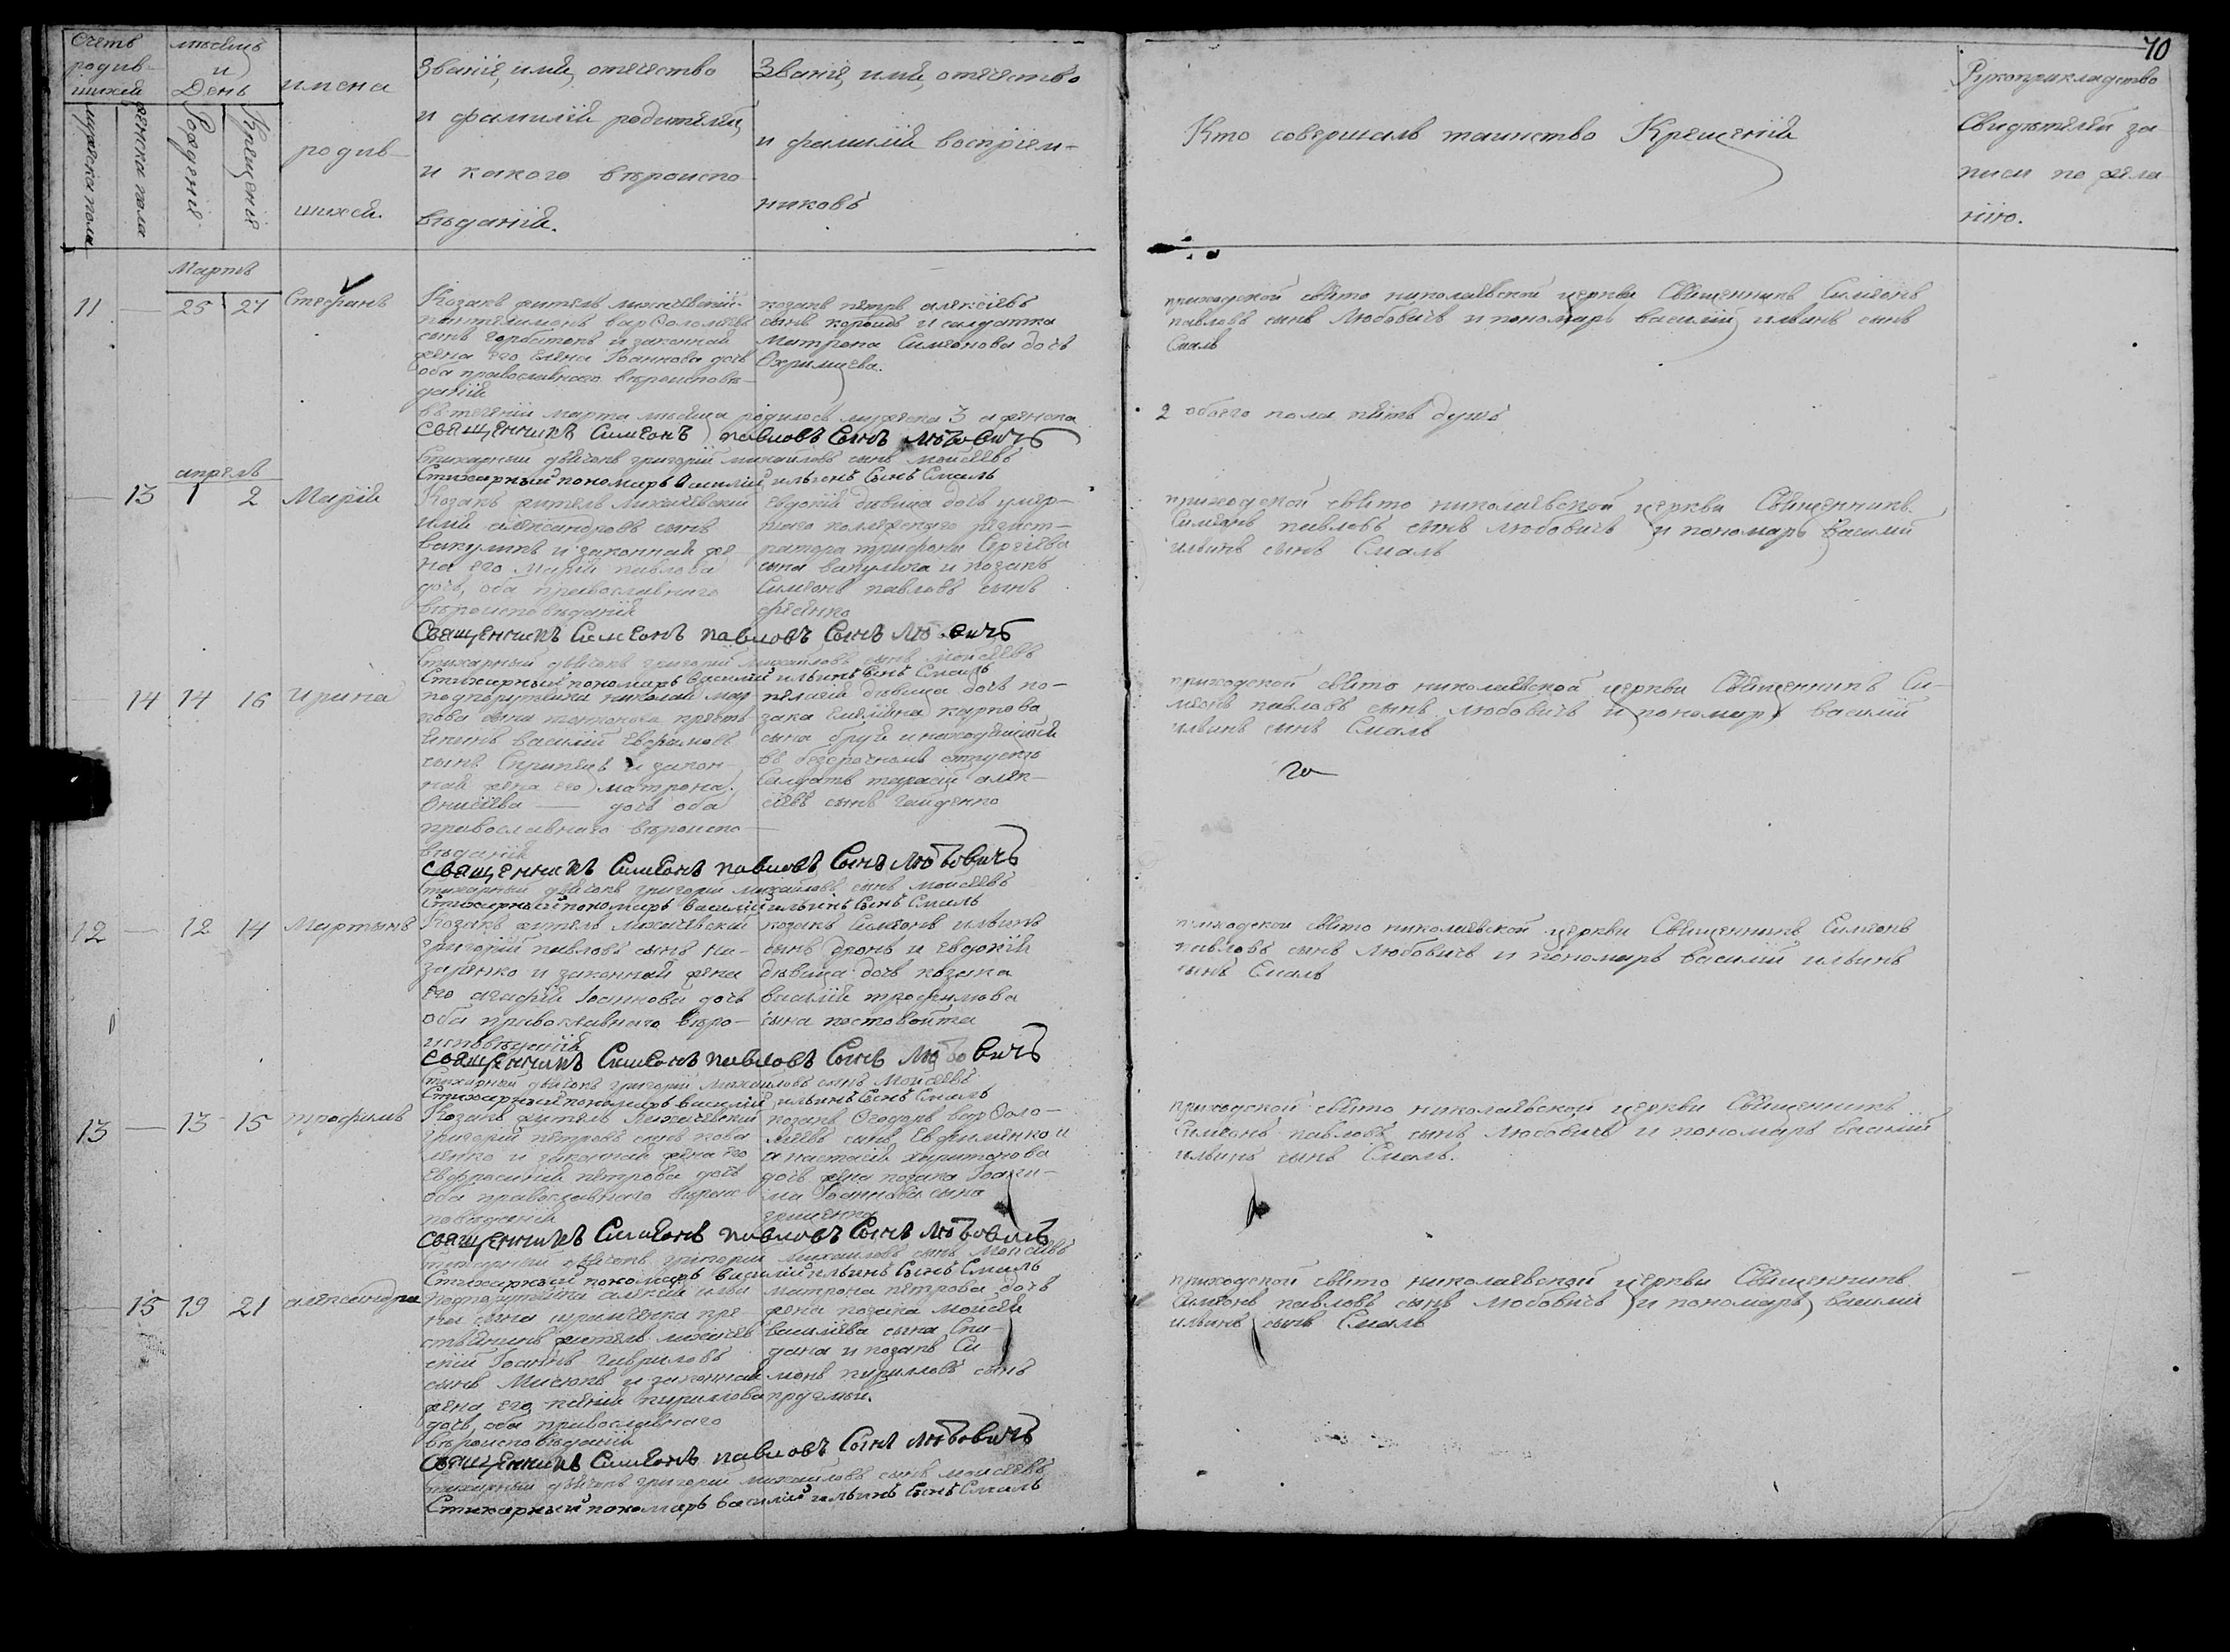 70
Счетъ родив-шихся
мѣсяцъ и День
имена родив-шихся.
Званіе, имя, отечество
и фамилія родителей,
и какого вѣроиспо
вѣданія.
Званіе, имя, отечество
и фамилія воспріем-
никовъ
Кто совершалъ таинство Крещенія
Рукоприкладство
Свидѣтелей за
писи по жела
нію.
мужеска пола
женска пола
Рожденія
Крещенія
Мартъ
11 — 25 27 Стефанъ
Козакъ житель
пантелимонъ варѳоломѣевъ
сынъ и законная
жена его Елена Іоаннова дочь
оба православнаго вѣроисповѣ-
данія
козакъ петръ алексѣевъ
сынъ и салдатка
Матрона Симеонова дочь
приходской свято николаевской церкви Священникъ Симеонъ
павловъ сынъ Любовичъ и пономарь василій ильинъ сынъ
Смаль
въ теченіи марта мѣсяца родилось мужеска 3 а женска
2 обоего пола пять душъ
Священникъ Симеонъ павловъ Сынъ Любовичъ
Стихарный дьячокъ григорій михайловъ сынъ Моисеевъ
Стихарный пономарь Василій ильинъ Сынъ Смаль
апрель
— 13 1 2 Марія
Козакъ житель
александровъ сынъ
вакуликъ и законная же
на его Марія павлова
дочь, оба православнаго
вѣроисповѣданія
Евдокія дивица дочь умер-
шаго
ратора трифона Сергіева
сына вакулика и козакъ
Симеонъ павловъ сынъ
приходской свято николаевской церкви Священникъ
Симеонъ павловъ сынъ Любовичъ и пономарь василій
ильинъ сынъ Смаль
Священникъ Симеонъ павловъ Сынъ Любовичъ
Стихарный дьячокъ григорій михайловъ сынъ Моисеевъ
Стихарный пономарь василій ильинъ Сынъ Смаль
— 14 14 16 ирина
подпорутчика николая
василій
сынъ и закон
ная жена его матрона
дочь оба
православнаго вѣроиспо-
вѣданія
дивица дочь ко-
зака карпова
сына
въ безсрочномъ отпуску
Салдатъ тарасій алек-
сѣевъ сынъ гайденко
приходской свято николаевской церкви Священникъ Си-
меонъ павловъ сынъ Любовичъ и пономарь василій
ильинъ сынъ Смаль
Священникъ Симеонъ павловъ Сынъ Любовичъ
Стихарный дьячокъ григорій михайловъ сынъ моисеевъ
Стихарный пономарь василій ильинъ Сынъ Смаль
12 — 12 14 Мартынъ
Козакъ житель
григорій павловъ сынъ на-
заренко и законная жена
его агафія Іоаннова дочь
оба православнаго вѣро-
исповѣданія
козакъ Симеонъ ильинъ
сынъ и евдокія
дѣвица дочь козака
василія трофимова
сына костовойта
приходской свято николаевской церкви Священникъ Симеонъ
павловъ сынъ Любовичъ и пономарь василій ильинъ
сынъ Смаль
Священникъ Симеонъ павловъ Сынъ Любовичъ
Стихарный дьячокъ григорій михайловъ сынъ Моисеевъ
Стихарный пономарь василій ильинъ Сынъ Смаль
13 — 13 15 трофимъ
Козакъ житель
григорій петровъ сынъ кова
ленко и законная жена его
Евфросинія петрова дочь
оба православнаго вѣроис
повѣданія
козакъ Ѳеодоръ варѳоло-
меевъ сынъ Евфименко и
анастасія харитонова
дочь жена козака Іоаки-
ма Іоаннова сына
гриценка
приходской свято николаевской церкви Священникъ
Симеонъ павловъ сынъ Любовичъ и пономарь василій
ильинъ сынъ Смаль.
Священникъ Симеонъ павловъ Сынъ Любовичъ
Стихарный дьячокъ григорій михайловъ сынъ Моисеевъ
Стихарный пономарь василій ильинъ Сынъ Смаль
— 15 19 21 александра
подпорутчика алексія ильи
на сына кре
стьянинъ житель
Іоаннъ гавриловъ
сынъ Мисюкъ и законная
жена его ксенія кириллова
дочь, оба православнаго
вѣроисповѣданія
матрона петрова дочь
жена козака моисея
василіева сына
и козакъ Си
меонъ кирилловъ сынъ
приходской свято николаевской церкви Священникъ
Симеонъ павловъ сынъ Любовичъ и пономарь василій
ильинъ сынъ Смаль
Священникъ Симеонъ павловъ Сынъ Любовичъ
Стихарный дьячокъ григорій михайловъ сынъ моисеевъ
Стихарный пономарь василій ильинъ Сынъ Смаль